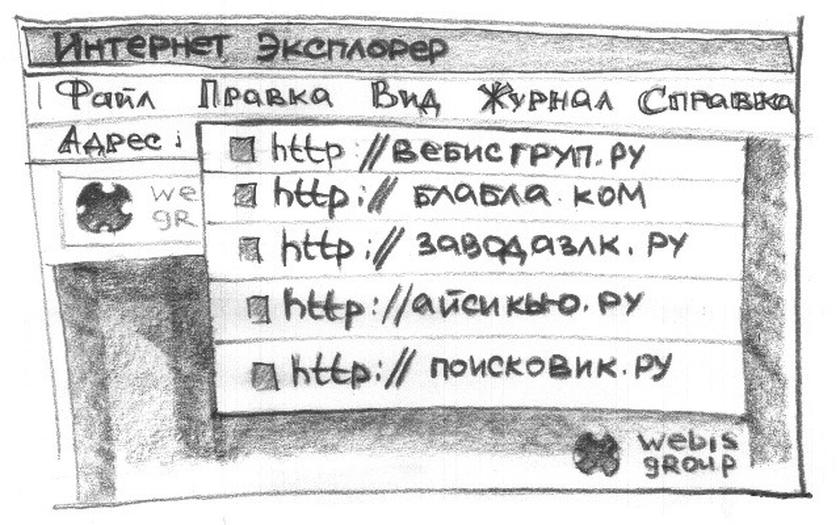 Интернет Эксплорер
Файл Правка Вид Журнал Справка
Адрес:
http://вебисгруп.ру
we
gr
http://блабла.ком
http://заводазлк.ру
http://айсикью.ру
http://поисковик.ру
webis
group